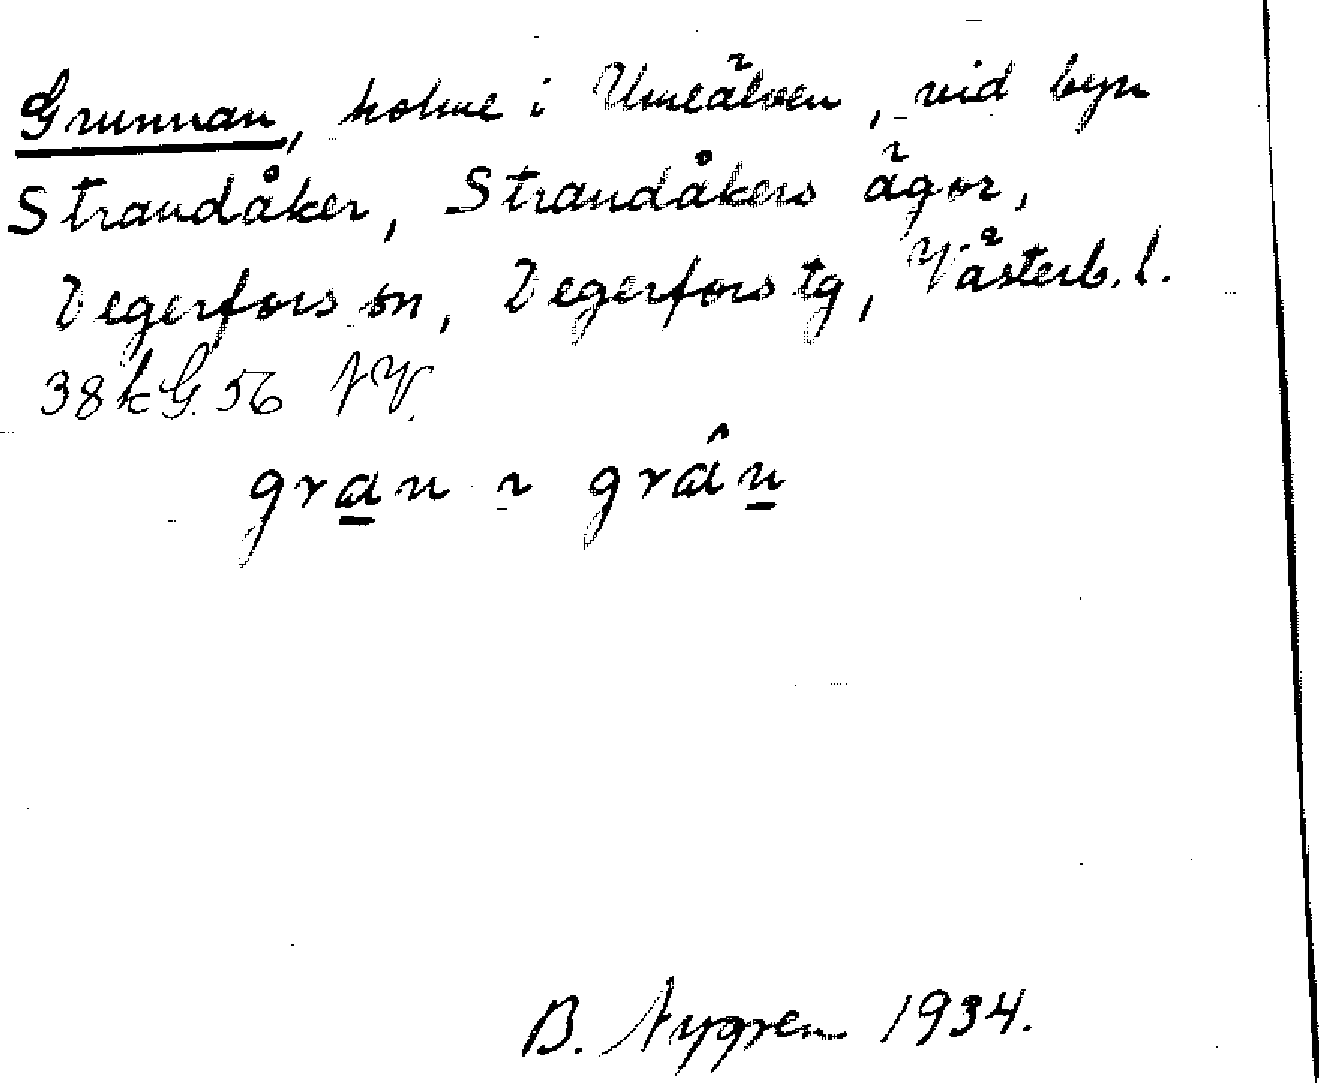 Grunnan, holme i Umeälven, vid byn
Strandåker, Strandåkers ägor,
Degerfors sn, Degerfors tg, Västerb. l.
38 k G. 56 NV.
gran ~ grân
B. Nygren 1934.